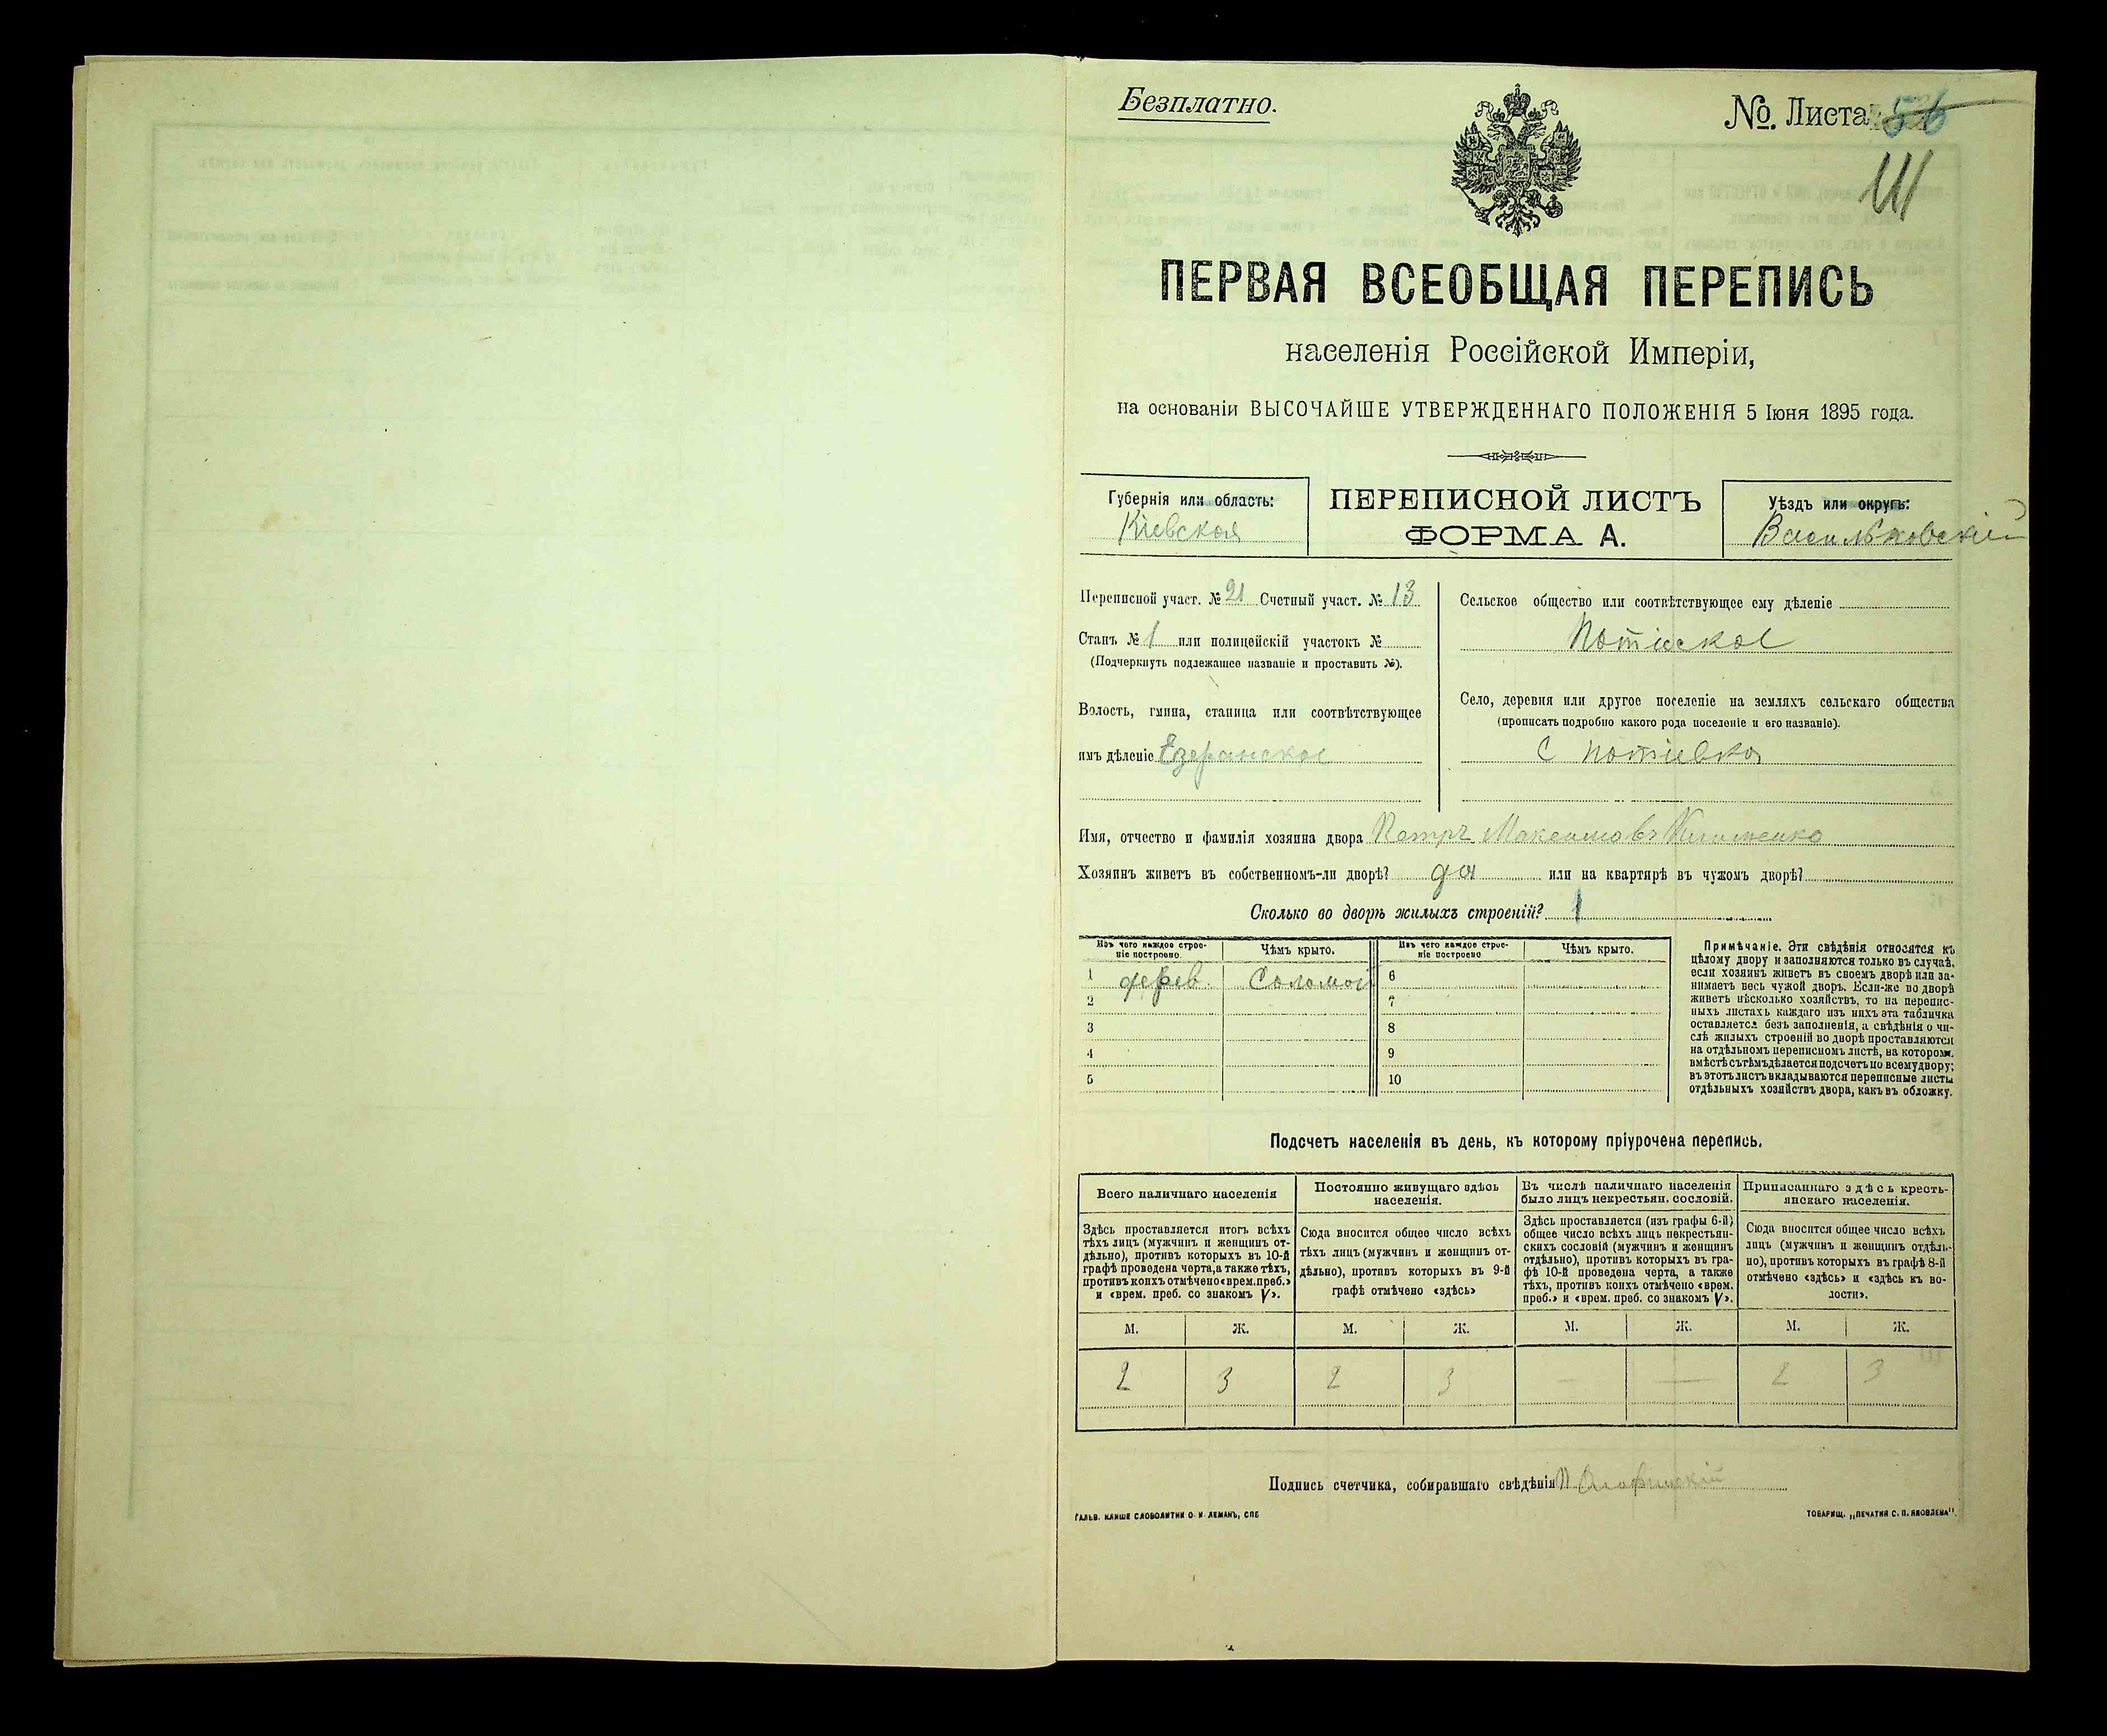 Безплатно.
№. Листа 56
111
ПЕРВАЯ ВСЕОБЩАЯ ПЕРЕПИСЬ
населенія Россійской Имперіи,
на основаніи ВЫСОЧАЙШЕ УТВЕРЖДЕННАГО ПОЛОЖЕНІЯ 5 Іюня 1895 года.
Губернія или область:
Кіевская
ПЕРЕПИСНОЙ ЛИСТЪ
ФОРМА А.
Уѣздъ или округъ:
Васильковскій
Переписной участ. № 21 Счетный участ. № 13
Станъ № 1 или полицейскій участокъ №
(Подчеркнуть подлежащее названіе и проставить №).
Волость, гмина, станица или соотвѣтствующее
имъ дѣленіе Езеранское
Сельское общество или соотвѣтствующее ему дѣленіе
Потіевское
Село, деревня или другое поселеніе на земляхъ сельскаго общества
(прописать подробно какого рода поселеніе и его названіе).
С Потіевка
Имя, отчество и фамилія хозяина двора Петръ Максимовъ Клименко
Хозяинъ живетъ въ собственномъ-ли дворѣ? да или на квартирѣ въ чужомъ дворѣ?
Сколько во дворѣ жилыхъ строеній? 1
Изъ чего каждое строе-
ніе построено.
Чѣмъ крыто.
Изъ чего каждое строе-
ніе построено
Чѣмъ крыто.
1 дерев. Соломой 6
2 7
3 8
4 9
5 10
Примѣчаніе. Эти свѣдѣнія относятся къ
цѣлому двору и заполняются только въ случаѣ,
если хозяинъ живетъ въ своемъ дворѣ или за-
нимаетъ весь чужой дворъ. Если-же во дворѣ
живетъ нѣсколько хозяйствъ, то на перепис-
ныхъ листахъ каждаго изъ нихъ эта табличка
оставляется безъ заполненія, а свѣдѣнія о чи-
слѣ жилыхъ строеній во дворѣ проставляются
на отдѣльномъ переписномъ листѣ, на которомъ
вмѣстѣ съ тѣмъ дѣлается подсчетъ по всему двору;
въ этотъ листъ вкладываются переписные листы
отдѣльныхъ хозяйствъ двора, какъ въ обложку.
Подсчетъ населенія въ день, къ которому пріурочена перепись.
Всего наличнаго населенія
Здѣсь проставляется итогъ всѣхъ
тѣхъ лицъ (мужчинъ и женщинъ от-
дѣльно), противъ которыхъ въ 10-й
графѣ проведена черта, а также тѣхъ,
противъ коихъ отмѣчено «врем. преб.»
и «врем. преб. со знакомъ V».
Постоянно живущаго здѣсь
населенія.
Сюда вносится общее число всѣхъ
тѣхъ лицъ (мужчинъ и женщинъ от-
дѣльно), противъ которыхъ въ 9-й
графѣ отмѣчено «здѣсь»
Въ числѣ наличнаго населенія
было лицъ некрестьян. сословій.
Здѣсь проставляется (изъ графы 6-й)
общее число всѣхъ лицъ некрестьян-
скихъ сословій (мужчинъ и женщинъ
отдѣльно), противъ которыхъ въ гра-
фѣ 10-й проведена черта, а также
тѣхъ, противъ коихъ отмѣчено «врем.
преб.» и «врем. преб. со знакомъ V».
Приписаннаго здѣсь кресть-
янскаго населенія.
Сюда вносится общее число всѣхъ
лицъ (мужчинъ и женщинъ отдѣль-
но), противъ которыхъ въ графѣ 8-й
отмѣчено «здѣсь» и «здѣсь къ во-
лости».
М. Ж. М. Ж. М. Ж. М. Ж.
2 3 2 3 — — 2 3
Подпись счетчика, собиравшаго свѣдѣнія П
ГАЛЬВ. КЛИШЕ СЛОВОЛИТНИ О. И. ЛЕМАНЪ, СПБ
ТОВАРИЩ. „ПЕЧАТНЯ С. П. ЯКОВЛЕВА".